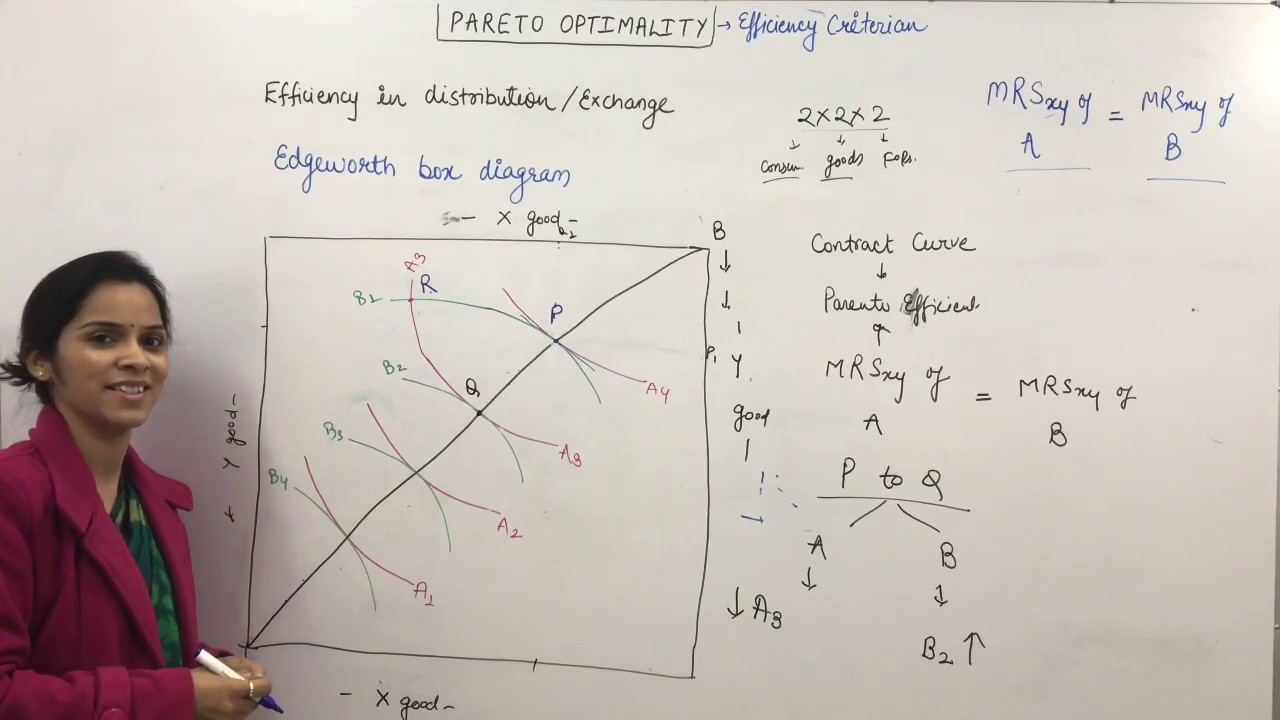 PARETO OPTIMALITY → Efficiency Criterian
Efficiency in distribution/Exchange
Edgeworth box diagram
2x2x2
consu. goods FoPs.
MRSxy of A = MRSxy of B
X good
B
Y good
A3
R
B1
P
A4
B2
Q
A3
B3
A2
B4
A1
X good
Y
good
Contract Curve
↓
Pareto Efficient
MRSxy of A = MRSxy of B
P to Q
A B
↓ ↓
↓ A3 B2 ↑